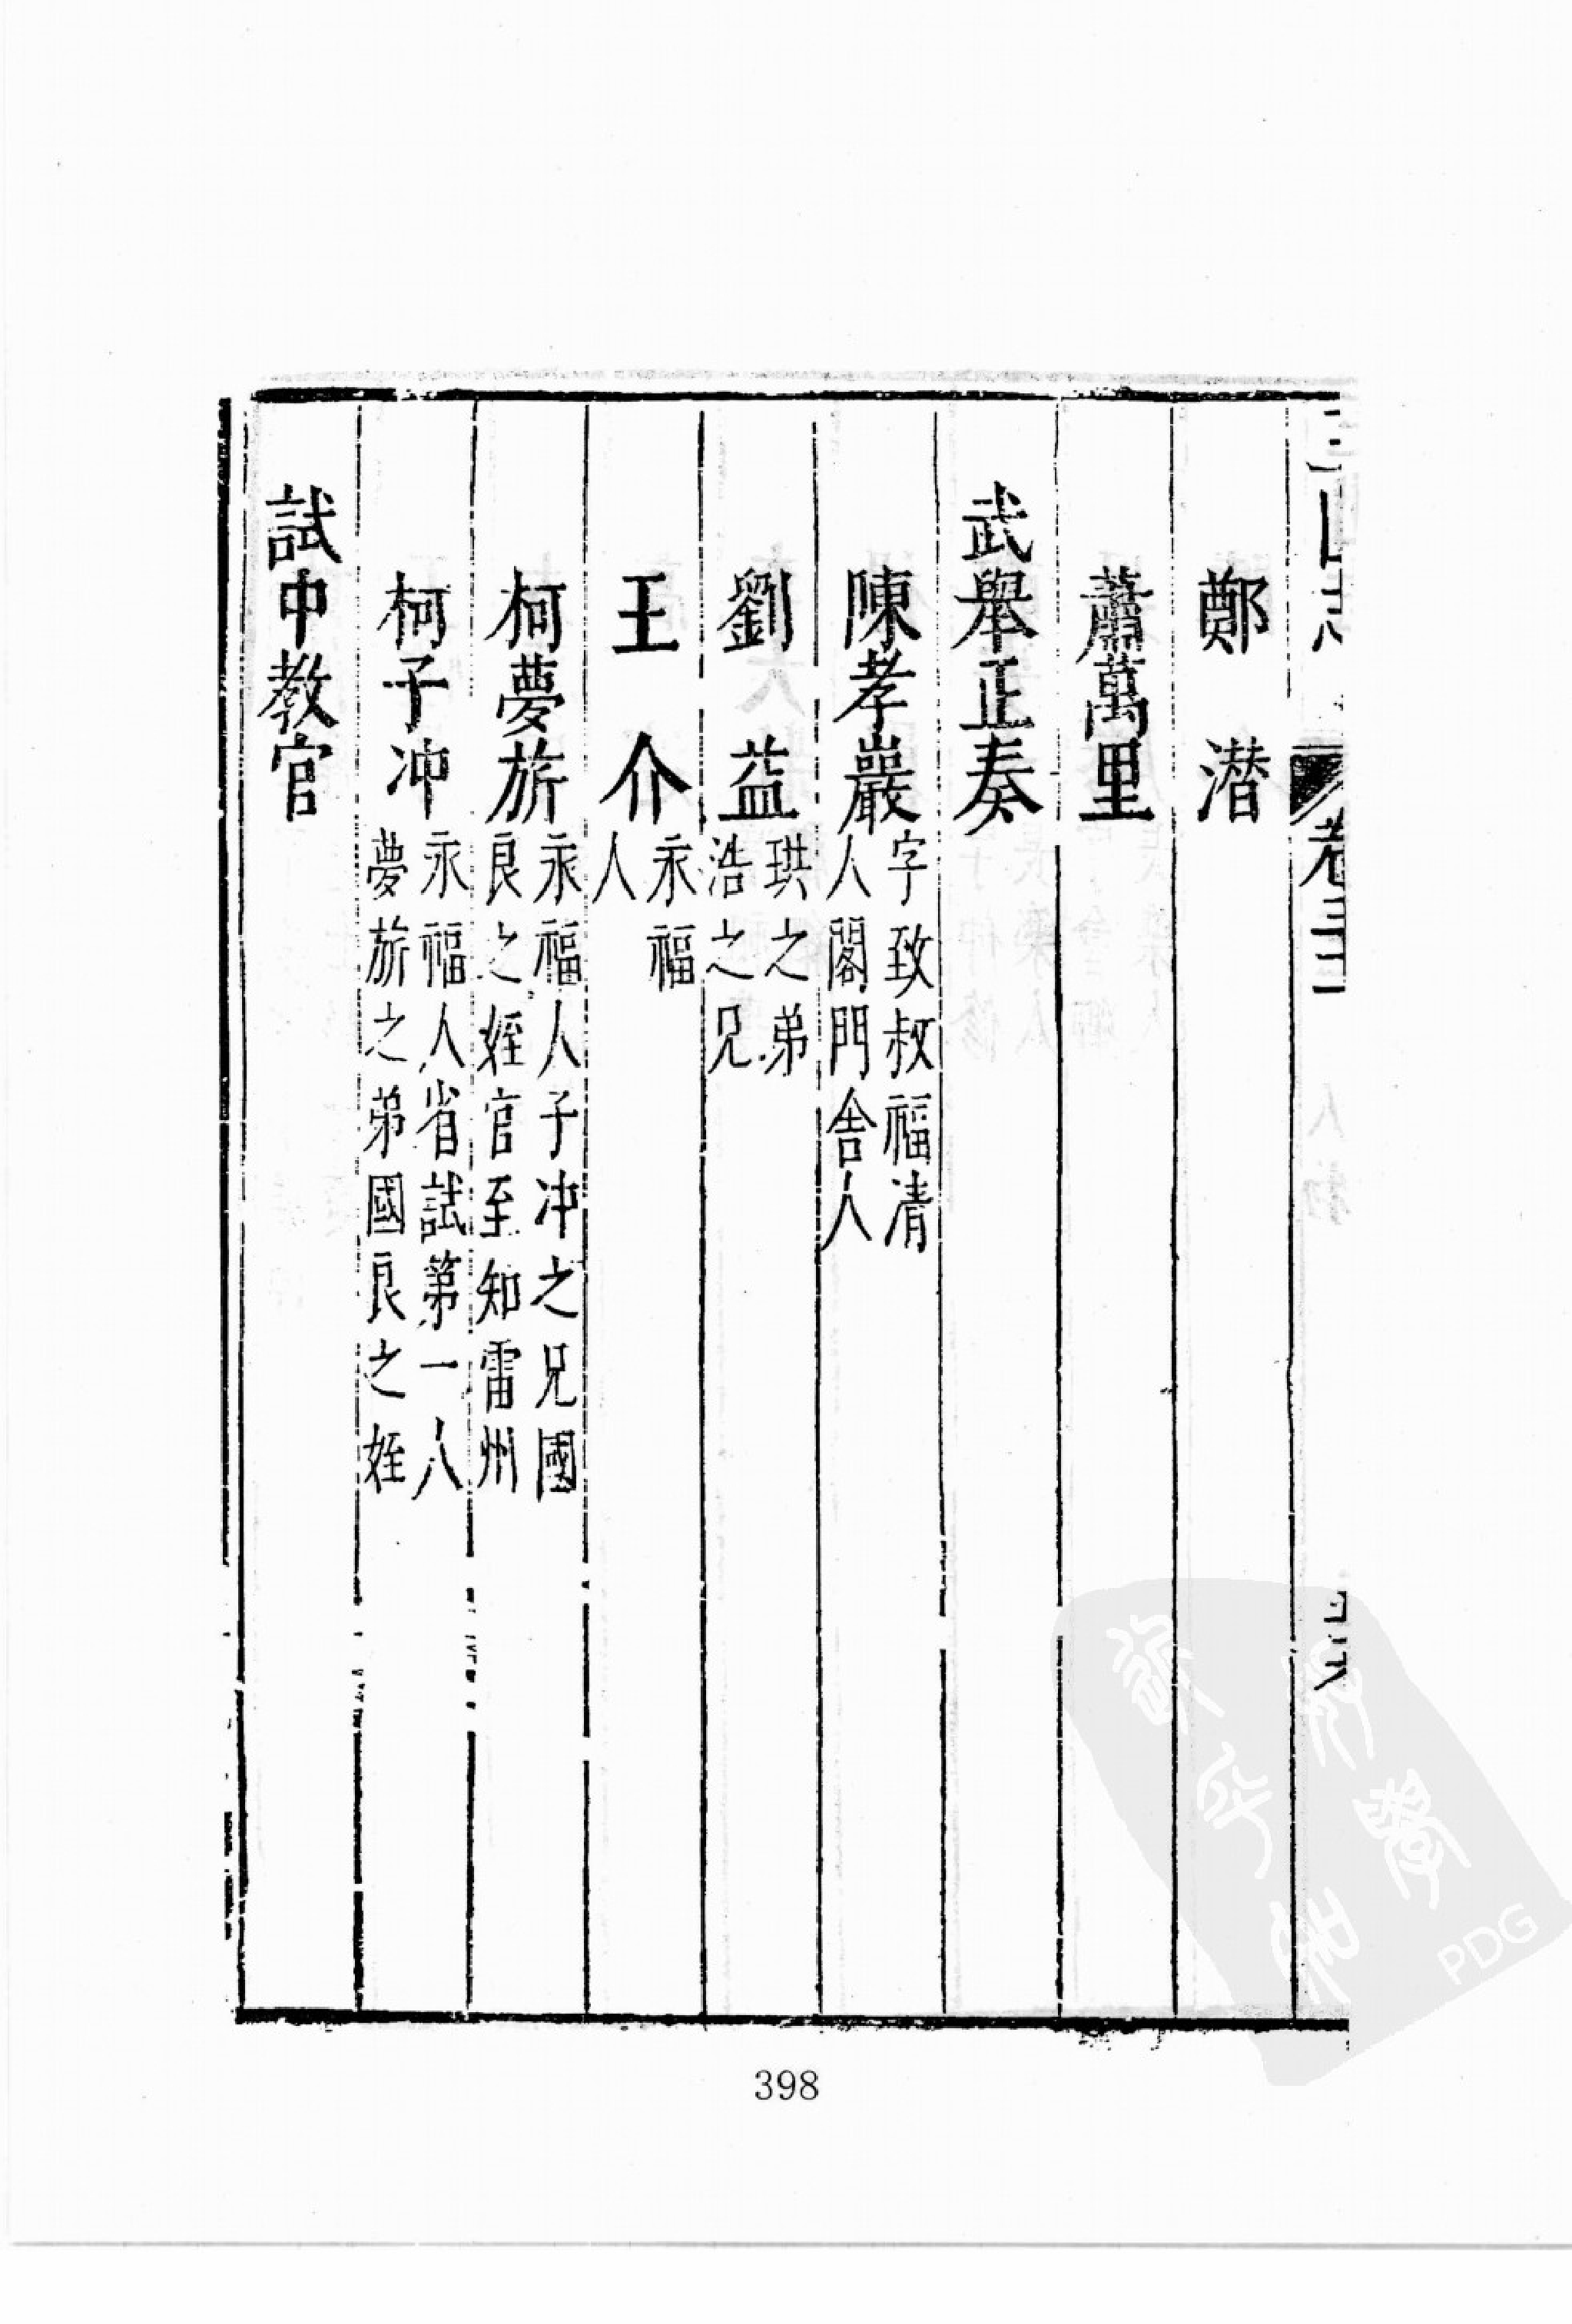 鄭潛
蕭萬里
武舉正奏
陳孝嚴字致叔福清
人閣門舍人
劉益珙之弟
浩之兄
王介永福
人
柯夢旂永福人子冲之兄國
良之姪官至知雷州
柯子冲永福人省試第一人
夢旂之弟國良之姪
試中教官
398
PDG